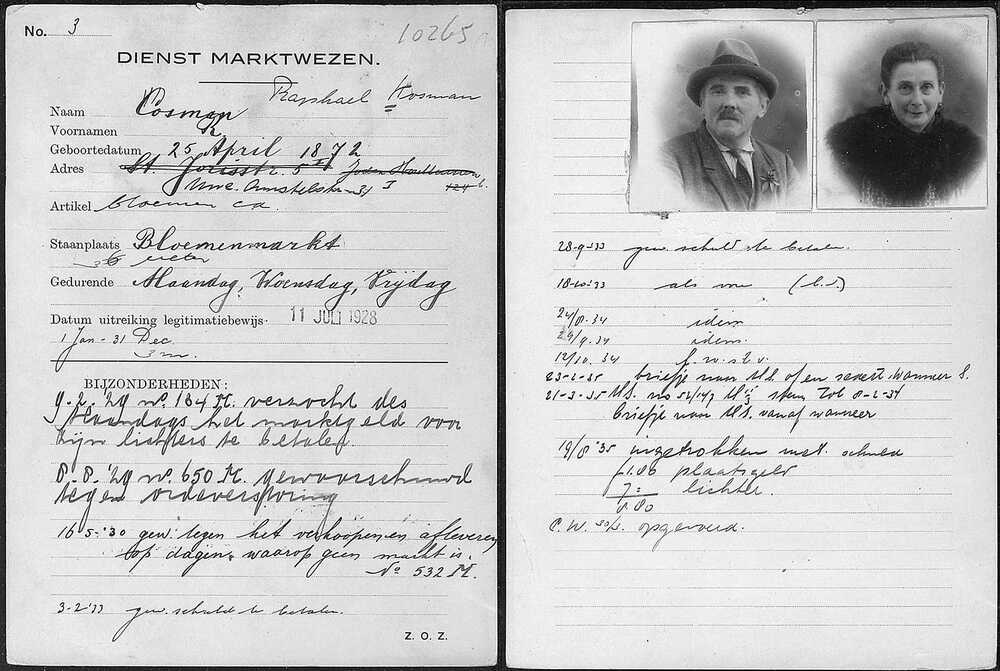 No. 3
10265
DIENST MARKTWEZEN.
Raphael Kosman
Naam Cosman
Voornamen R
Geboortedatum 25 April 1872
Adres St. Jorisstr. 5 Joden Houttuinen
Nwe. Amstelstr. 31 I 124
Artikel bloemen ca.
Staanplaats Bloemenmarkt
36 meter
Gedurende Maandag, Woensdag, Vrijdag
Datum uitreiking legitimatiebewijs 11 JULI 1928
1 Jan - 31 Dec.
3 m.
BIJZONDERHEDEN:
9-2-'29 no. 184 M. verzocht des
Maandags het marktgeld voor
zijn lichters te betalen.
8-8-'29 no. 650 M. gewaarschuwd
tegen ordeverstoring
16-5-'30 gew. tegen het verkoopen en afleveren
op dagen, waarop geen markt is.
No 532 M.
3-2-'33 gew. schuld te betalen.
Z. O. Z.
28-9-33 gew. schuld te betalen.
18-10-33 als vore
24/8.34 idem
24/9.34 idem.
12/10.34
23-2-35 briefje naar M.S. of en sedert wanneer
21-3-35 M.S. no 52/14/3 steun tot 8-2-34
briefje naar M.S. vanaf wanneer
19/8 '35 ingetrokken met schuld
1.86 plaatsgeld
7.= lichter.
8.86
C.W. opgevoerd.